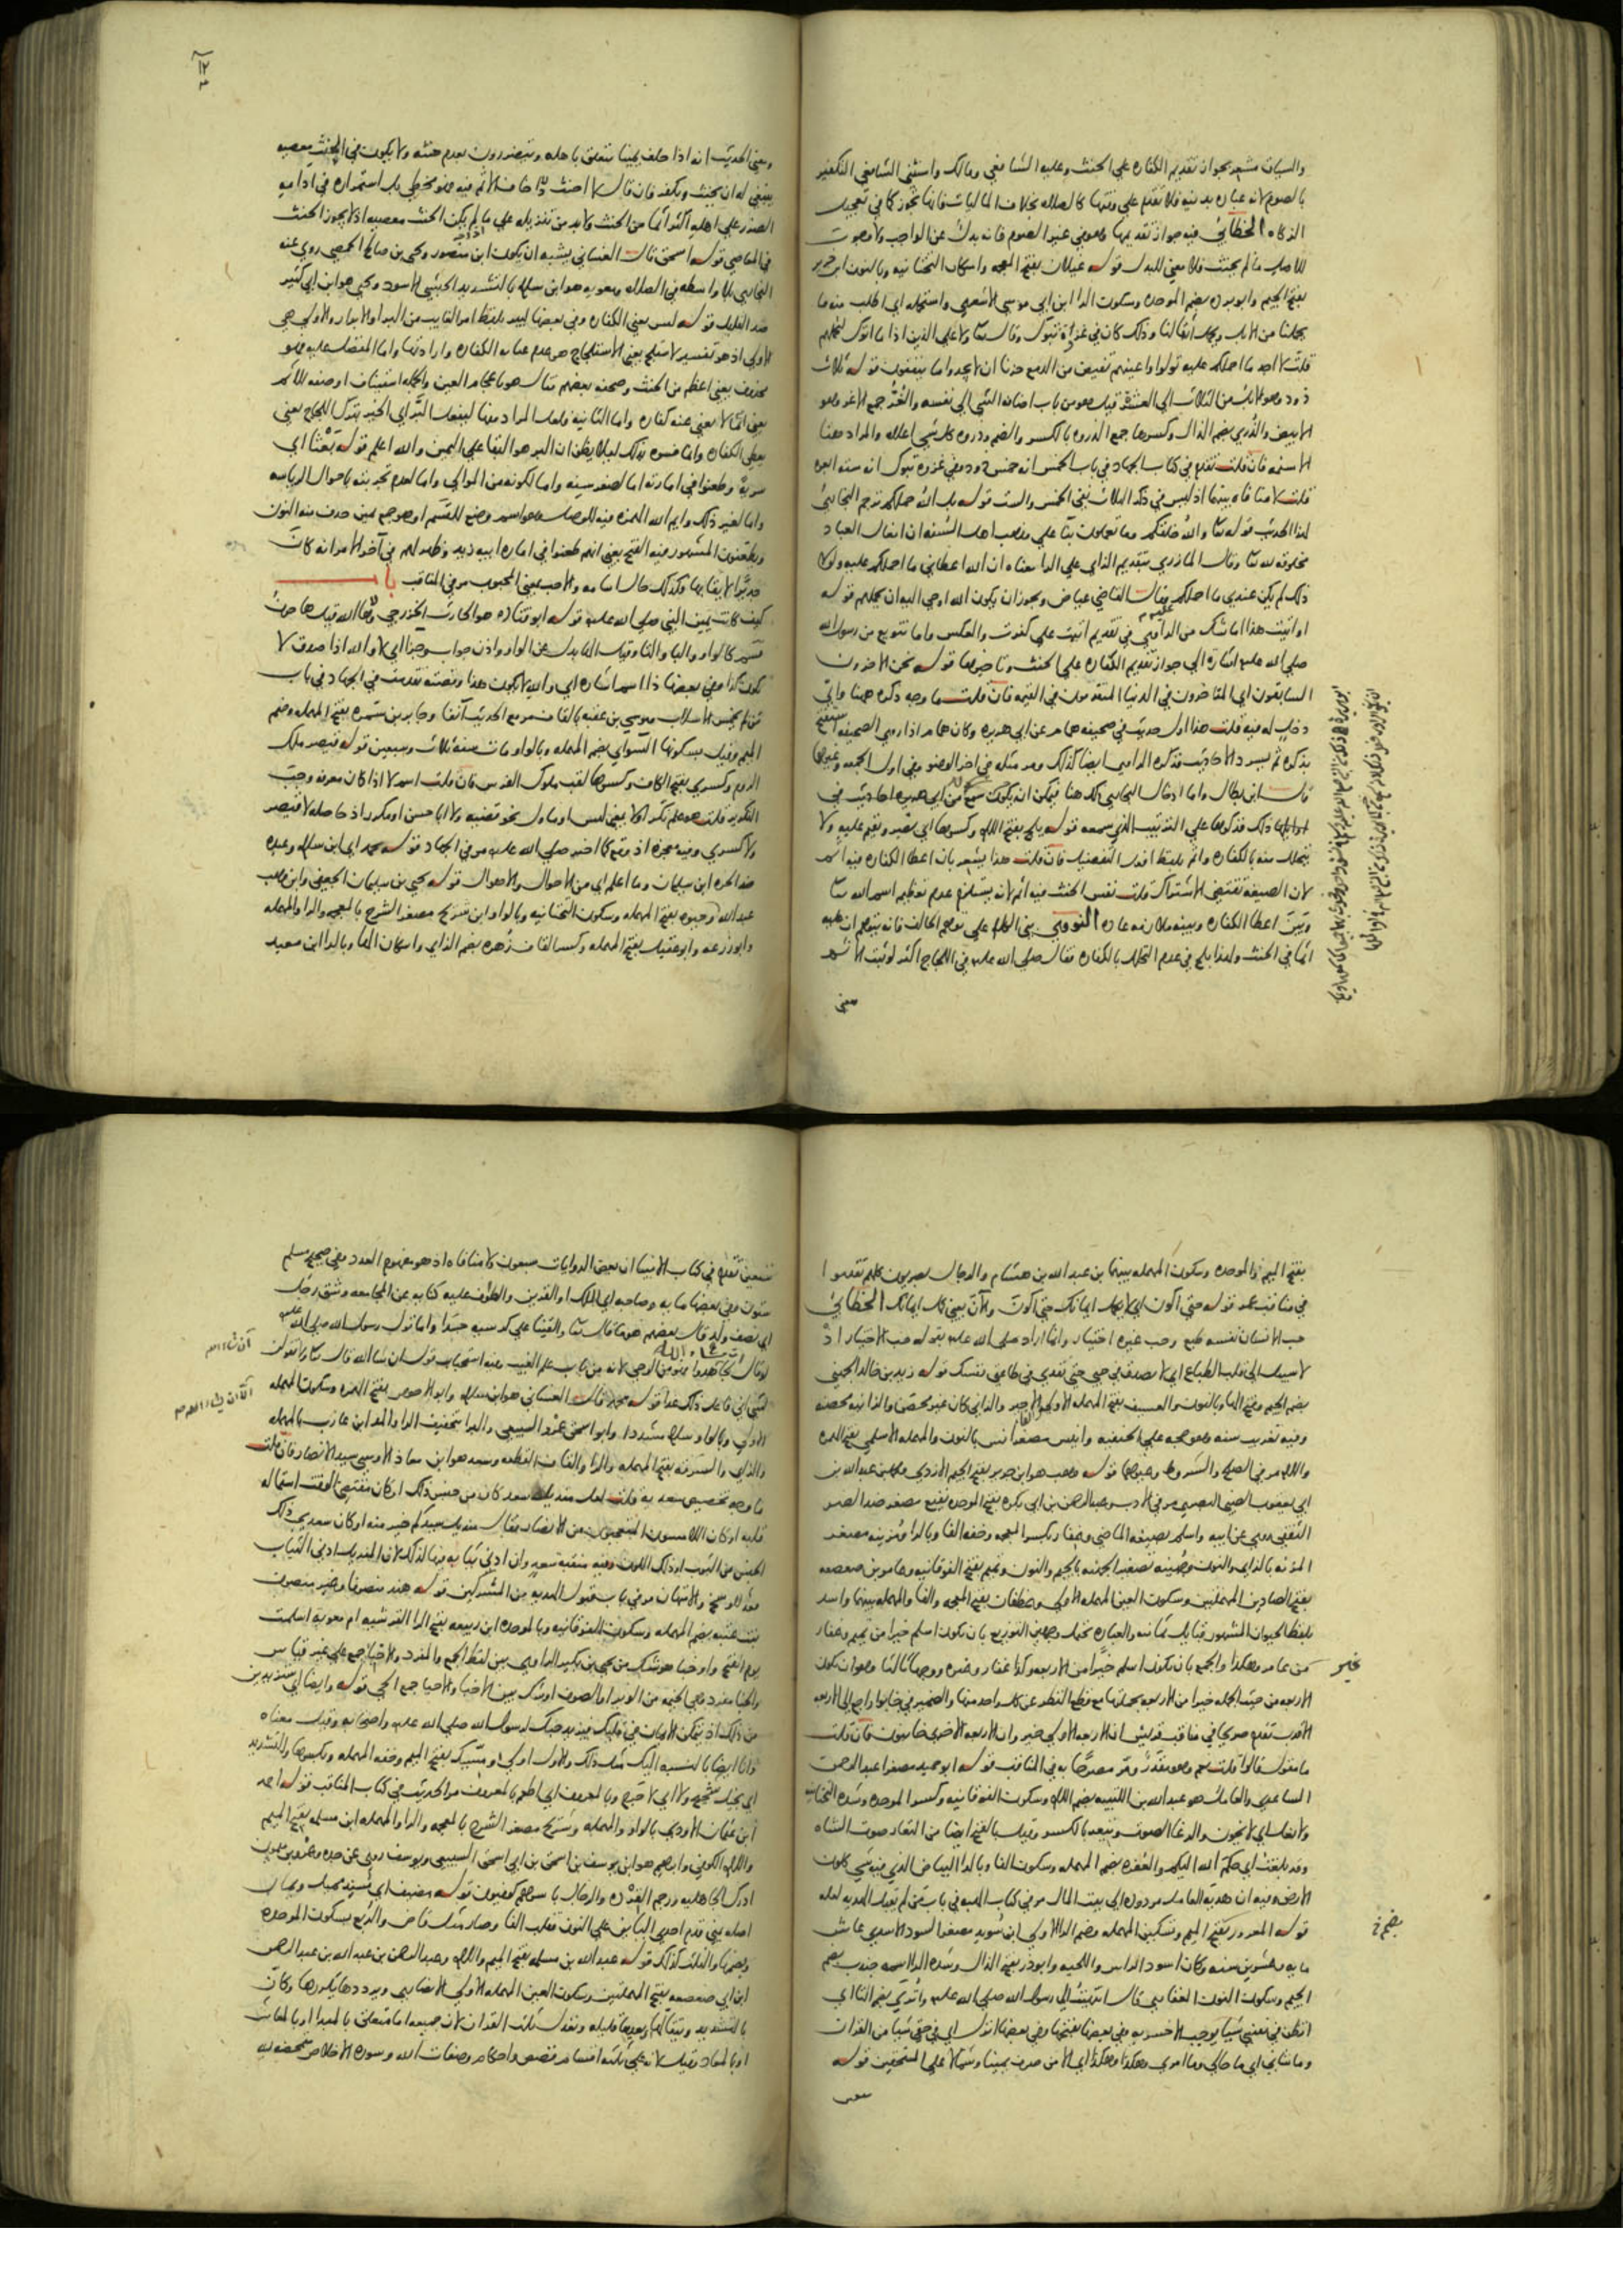 والسياق مشعر بجواز تقديم الكفارة علي الحنث وعليه الشافعي ومالك واستثني الشافعي التكفير
بالصوم لانه عباده بدنيه فلا تقدم علي وقتها كالصلاه بخلاف الماليات فانها تجوز كما في تعجيل
الزكاه الخطابي فيه جواز تقديمها وهو في غير الصوم فانه بدل عن الواجب ولا وجوب
للاصل ما لم يحنث فلا معني للبدل قوله غيلان بفتح المعجمه واسكان التحتانيه وبالنون ابن جرير
بفتح الجيم وابو برده بضم الموحده وسكون الرا ابن ابي موسي الاشعري واستحمله اي اطلب منه ما
يحملنا من الابل ويحمل اثقالنا وذلك كان في غزوة تبوك وقال تعا ولا علي الذين اذا ما اتوك لتحملهم
قلت لا اجد ما احملكم عليه تولوا واعينهم تفيض من الدمع حزنا ان لا يجدوا ما ينفقون قوله ثلاث
ذود وهو الابل من الثلاث الي العشر قيل هو من باب اضافه الشي الي نفسه والغُرّ جمع الاغر وهو
الابيض والذُري بضم الذال وكسرها جمع الذروه بالكسر والضم وذروه كل شي اعلاه والمراد ههنا
الاسنمه فان قلت تقدم في كتاب الجهاد في باب الخمس انه خمس ذود وفي غزوه تبوك انه سته ابعره
قلت لا منافاه بينها اذ ليس في ذكر الثلاث نفي الخمس والست قوله بل الله حملكم ترجم البخاري
لهذا الحديث قوله تعا والله خلقكم وما تعملون بنا علي مذهب اهل السنه ان افعال العباد
مخلوقه لله تعا وقال المازري بتقديم الزاي علي الرا معناه ان الله اعطاني ما احملكم عليه ولولا
ذلك لم يكن عندي ما احملكم وقال القاضي عياض ويجوز ان يكون الله اوحي اليه ان يحملهم قوله
او اتيت هذا اما شك من الراوي في تقديم اتيت علي كفرت والعكس واما تنويع من رسول الله
صلي الله عليه اشاره الي جواز تقديم الكفاره علي الحنث وتاخيرها قوله نحن الاخرون
السابقون اي المتاخرون في الدنيا المتقدمون في القيمه فان قلت ما وجه ذكره ههنا واي
دخل له فيه قلت هذا اول حديث في صحيفه همام عن ابي هريره وكان همام اذا روي الصحيفه استفتح
بذكره ثم يسرد الاحاديث فذكره الراوي ايضا كذلك ومر مثله في اخر الوضو وفي اول الجمعه وغيرها
قال ابن بطال واما ادخال البخاري ذلك هنا فيمكن ان يكون سمع من ابي هريره احاديث في
اوايلها ذلك فذكرها علي الترتيب الذي سمعه قوله يلج بفتح اللام وكسرها اي يصر ويقيم عليه ولا
يتحلل منه بالكفاره واثم بلفظ افعل التفضيل فان قلت هذا يشعر بان اعطا الكفاره فيه اثم
لان الصيغه تقتضي الاشتراك قلت نفس الحنث فيه اثم لانه يستلزم عدم تعظيم اسم الله تعا
وبَيْنَ اعطا الكفاره وبينه ملازمه عاده النووي بني الكلام علي توهم الحالف فانه يتوهم ان عليه
اثما في الحنث ولهذا يلج في عدم التحلل بالكفاره فقال صلي الله عليه في اللجاج اكثر لو ثبت الاثم
معني
١٢
ومعني الحديث انه اذا حلف يمينا يتعلق باهله ويتضررون بعدم حنثه ولا يكون في الحنث معصيه
ينبغي له ان يحنث ويكفر فان قال لا احنث واخاف الاثم فيه فهو مخطي بل استمراره في ادامه
الضرر علي اهله اكثر اثما من الحنث ولا بد من تنزيله علي ما لم يكن الحنث معصيه اذ لا يجوز الحنث
في المعاصي قوله اسحق قال الغساني يشبه ان يكون ابن منصور ويحيي بن صالح الحمصي روي عنه
البخاري بلا واسطه في الصلاه ومعويه هو ابن سلام بالتشديد الحبشي الاسود ويحيي هو ابن ابي كثير
ضد القليل قوله ليس يعني الكفاره وفي بعضها ليبر بلفظ امر الغايب من البر او الابرار والاولي هي
الاولي اذ هو تفسير لاستلج يعني الاستلجاج هو عدم عنايه الكفاره وارادتها واما المفضل عليه فهو
محذوف يعني اعظم من الحنث وصححه بعضهم
يعني اثما لا يغني عنه كفاره واما الثانيه فلعل المراد منها ليفعل البَرّ اي الخير بترك اللجاج يعني
يعطي الكفاره وانما فسره بذلك ليلا يظن ان البر هو البقا علي اليمين والله اعلم قوله بَعْثا اي
سريةً وطعنوا في امارته اما لصغر سنه واما لكونه من الموالي واما لعدم تجربته باحوال الرياسه
واما لغير ذلك وايم الله الهمزه فيه للوصل وهو اسم وضع للقسم او هو جمع يمين حذف منه النون
ويطعنون المشهور فيه الفتح يعني انهم طعنوا في اماره ابيه زيد وظهر لهم في آخر الامر انه كان
جديرًا لايقا بها وكذلك حال اسامه والاحب بمعني المحبوب مر في المناقب باب
كيف كانت يمين النبي صلي الله عليه قوله ابو قتاده هو الحارث الخزرجي ولاها الله قيل ها حرف
قسم كالواو والبا والتا وقيل الها بدل عن الواو واذن جواب وجزا اي لا والله اذا صدق لا
يكون كذا وفي بعضها ذا اسم اشاره اي والله لا يكون هذا وقصته تقدمت في الجهاد في باب
من لم يخمس الاسلاب موسي بن عقبه بالقاف مر مع الحديث آنفا وجابر بن سمره بفتح المهمله وضم
الميم وقيل بسكونها السوائي بضم المهمله وبالواو مات سنه ثلاث وسبعين قوله قيصر ملك
الروم وكسري بفتح الكاف وكسرها لقب ملوك الفرس فان قلت اسم لا اذا كان معرفه وجب
التكرير قلت هو علم نكر او لا بمعني ليس او ماول نحو قضيه ولا ابا حسن او مكرر اذ حاصله لا قيصر
ولا كسري وفيه معجزه اذ وقع كما اخبر صلي الله عليه مر في الجهاد قوله محمد اي ابن سلام وعبده
ضد الحره ابن سليمان وما اعلم اي من الاحوال والاهوال قوله يحيي بن سليمان الجعفي وابن وهب
عبد الله وحيوه بفتح المهمله وسكون التحتانيه وبالواو ابن شريح مصغر الشرح بالمعجمه والرا والمهمله
وابو زرعه وابو عقيل بفتح المهمله وكسر القاف زهره بضم الزاي واسكان الها وبالرا ابن معبد
بفتح الميم والموحده وسكون المهمله بينهما بن عبد الله بن هشام والرجال بصريون كلهم تقدموا
في مناقب عمر قوله حتي اكون اي لا يكمل ايمانك حتي اكون والآن يعني كمل ايمانك الخطابي
حب الانسان نفسه طبع وحب غيره اختيار وانما اراد صلي الله عليه بقوله حب الاختيار اذ
لا سبيل الي قلب الطباع اي لا تصدق في حبي حتي تفدي في طاعتي نفسك قوله زيد بن خالد الجهني
بضم الجيم وفتح الها وبالنون والعسيف بفتح المهمله الاولي الاجير والزاني كان غير محصن والزانيه محصنه
وفيه تغريب سنه وهو حجه علي الحنفيه وانيس مصغر انس بالنون والمهمله الاسلمي بفتح الهمزه
واللام مر في الصلح والشروط وغيرهما قوله وهب هو ابن جرير بفتح الجيم الازدي ومحمد بن عبد الله بن
ابي يعقوب الضبي البصري مر في الادب وعبد الرحمن بن ابي بكره بفتح الموحده نفيع مصغر ضد الضر
الثقفي روي عن ابيه واسلم بصيغه الماضي وغفار بكسر المعجمه وخفه الفا وبالرا ومُزينه مصغر
المزنه بالزاي والنون وجُهينه تصغير الجهنه بالجيم والنون وتميم بفتح الفوقانيه وعامر بن صعصعه
بفتح الصادين المهملتين وسكون العين المهمله الاولي وغطفان بفتح المعجمه والفا والمهمله بينهما واسد
بلفظ الحيوان المشهور قبايل ثمانيه والعباره تحتمل وجهين التوزيع بان يكون اسلم خيرا من تميم وغفار
من عامر وهكذا والجمع بان يكون اسلم خيرًا من الاربعه وكذا غفار وغيره ووجهًا ثالثا وهو ان يكون
خير
الاربعه من حيث الجمله خيرا من الاربعه بجملتها مع قطع النظر عن كل واحد منها والضمير في خابوا راجع الي الاربعه
الاقرب تقدم صريحا في مناقب قريش ان الاربعه الاولي خير وان الاربعه الاخري خايبون فان قلت
ما مقول قالوا قلت نعم وهو مقدر ومر مصرحا به في المناقب قوله ابو حميد مصغرا عبد الرحمن
الساعدي والعامل هو عبد الله بن اللتبيه بضم اللام وسكون الفوقانيه وكسر الموحده وشده التحتانيه
ولا يغل اي لا يخون والرغا الصوت وتيعر بالكسر وقيل بالفتح ايضا من اليعار صوت الشاه
وقد بلغت اي حكم الله اليكم والعُفره بضم المهمله وسكون الفا وبالرا البياض الذي فيه شي كلون
الارض وفيه ان هديه العامل مردوده الي بيت المال مر في كتاب الهبه في باب من لم يقبل الهديه لعله
قوله المعرور بفتح الميم وتسكين المهمله وضم الرا الاولي ابن سُويد مصغر السود الاسدي عاش
مايه وعشرين سنه وكان اسود الراس واللحيه وابو ذر بفتح الذال وشده الرا اسمه جندب بضم
الجيم وسكون النون الغفاري قال انتهيت الي رسول الله صلي الله عليه وأتُري بضم التا اي
اتظن في نفسي شيا يوجب الاخسريه وفي بعضها بفتحها وفي بعضها انزل اي في حقي شيا من القران
وما شاني اي ما حالي وما امري وهكذا وهكذا اي الا من صرف يمينا وشمالا علي المستحقين قوله
تسعين
تسعين تقدم في كتاب الانبيا ان بعض الروايات سبعون ولا منافاه اذ هو مفهوم العدد وفي صحيح مسلم
ستون وفي بعضها مايه وصاحبه اي الملك او القرين والطوف عليه كنايه عن المجامعه وشق رجل
اي نصف ولد قال بعضهم هو ما قال تعا والقينا علي كرسيه جسدا واما قول رسول الله صلي الله عليه
لو قال ان شاء الله لجاهدوا فهو من الوحي لانه من باب علم الغيب وفيه استحباب قول ان شا الله قال تعا ولا تقولن
لشي اني فاعل ذلك غدا قوله محمد قال الغساني هو ابن سلام وابو الاحوص بفتح الهمزه وسكون المهمله
الاولي وبالواو سلام مشددا وابو اسحق عمرو السبيعي والبرا بتخفيف الرا والمد ابن عازب بالمهمله
والزاي والسرقه بفتح المهمله والرا والقاف القطعه وسعد هو ابن معاذ الاوسي سيد الانصار فان قلت
ما وجه تخصيص سعد به قلت لعل منديل سعد كان من جنس ذلك او كان مقتضي الوقت استماله
قلبه او كان اللامسون المتعجبون من الانصار فقال منديل سيدكم خير منه او كان سعد يحب ذلك
الجنس من الثوب او ذلك اللون وفيه منقبه سعد وان ادني ثيابه فيها كذلك لان المنديل ادني الثياب
معد للوسخ والامتهان مر في باب قبول الهديه من المشركين قوله هند منصرفا وغير منصرف
بنت عتبه بضم المهمله وسكون الفوقانيه وبالموحده ابن ربيعه بفتح الرا القرشيه ام معويه اسلمت
يوم الفتح واو خبا هو شك من يحيي بن بكير الراوي بين لفظ الجمع والمفرد والاخبا جمع علي غير قياس
والخبا مفرد وهي الخيمه من الوبر او الصوف او شك بين الاخبا والاحيا جمع الحي قوله وايضا اي ستزيدين
من ذلك اذ يتمكن الايمان في قلبك فيزيد حبك لرسول الله صلي الله عليه واصحابه وقيل معناه
وانا ايضا بالنسبه اليك مثل ذلك والاول اولي ومسيك بفتح الميم وخفه المهمله وبكسرها والتشديد
اي بخيل شحيح ولا اي لا حرج وبالمعروف اي اطعم بالمعروف مر الحديث في كتاب المناقب قوله احمد
ابن عثمان الاودي بالواو والمهمله وشريح مصغر الشرح بالمعجمه والرا والمهمله ابن مسلمه بفتح الميم
واللام الكوفي وابرهيم هو ابن يوسف بن اسحق بن ابي اسحق السبيعي ويوسف روي عن جده وعمرو بن ميمون
ادرك الجاهليه ورجم القِرْده والرجال باسرهم كوفيون قوله مضيف اي مُسند مميل ويمان
اصله يمني قدم احدي اليائين علي النون فقلب الفا وصار مثل قاض والرُبع بسكون الموحده
وبضمها والثلث كذلك قوله عبد الله بن مسلمه بفتح الميم واللام وعبد الرحمن بن عبد الله بن عبد الرحمن
ابن ابي صعصعه بفتح المهملتين وسكون العين المهمله الاولي الانصاري ويرددها يكررها وكأن
بالتشديد ويتقالها يعدها قليله وتعدل ثلث القران لان جميعه اما متعلق بالمبدا او بالمعاش
او بالمعاد وقيل لانه علي ثلثه اقسام قصص واحكام وصفات الله وسوره الاخلاص متمحضه لله